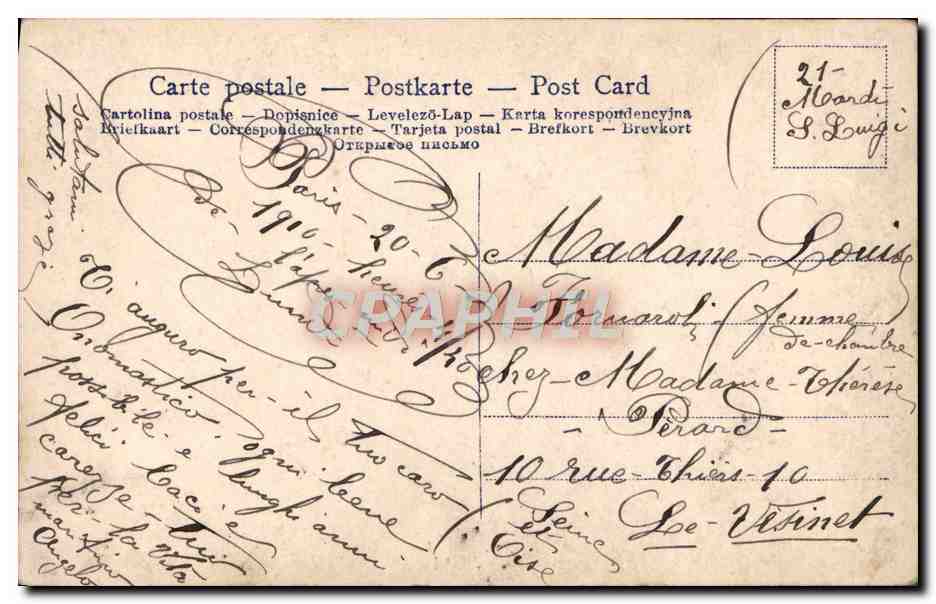 Carte postale — Postkarte — Post Card
Cartolina postale — Dopisnice — Levelező-Lap — Karta korespondencyjna
Briefkaart — Correspondenzkarte — Tarjeta postal — Brefkort — Brevkort
Открытое письмо
21-
Mardi
S. Luigi
Paris - 20 - 6
1910 - heures 1/20
de - l'après-midi
Lundi
T'auguro - per - il tuo caro
Onomastico ogni bene
possibile - e lunghi anni
felici baci e
carezze - tuo
per - la vita
maritino
Angelo
salutami
tutti
CPAPHIL
Madame - Louise
Fornaroli (femme
de-chambre
chez - Madame - Thérèse
- Pérard -
10 rue - Thiers - 10
Le - Vésinet
(Seine
et
Oise